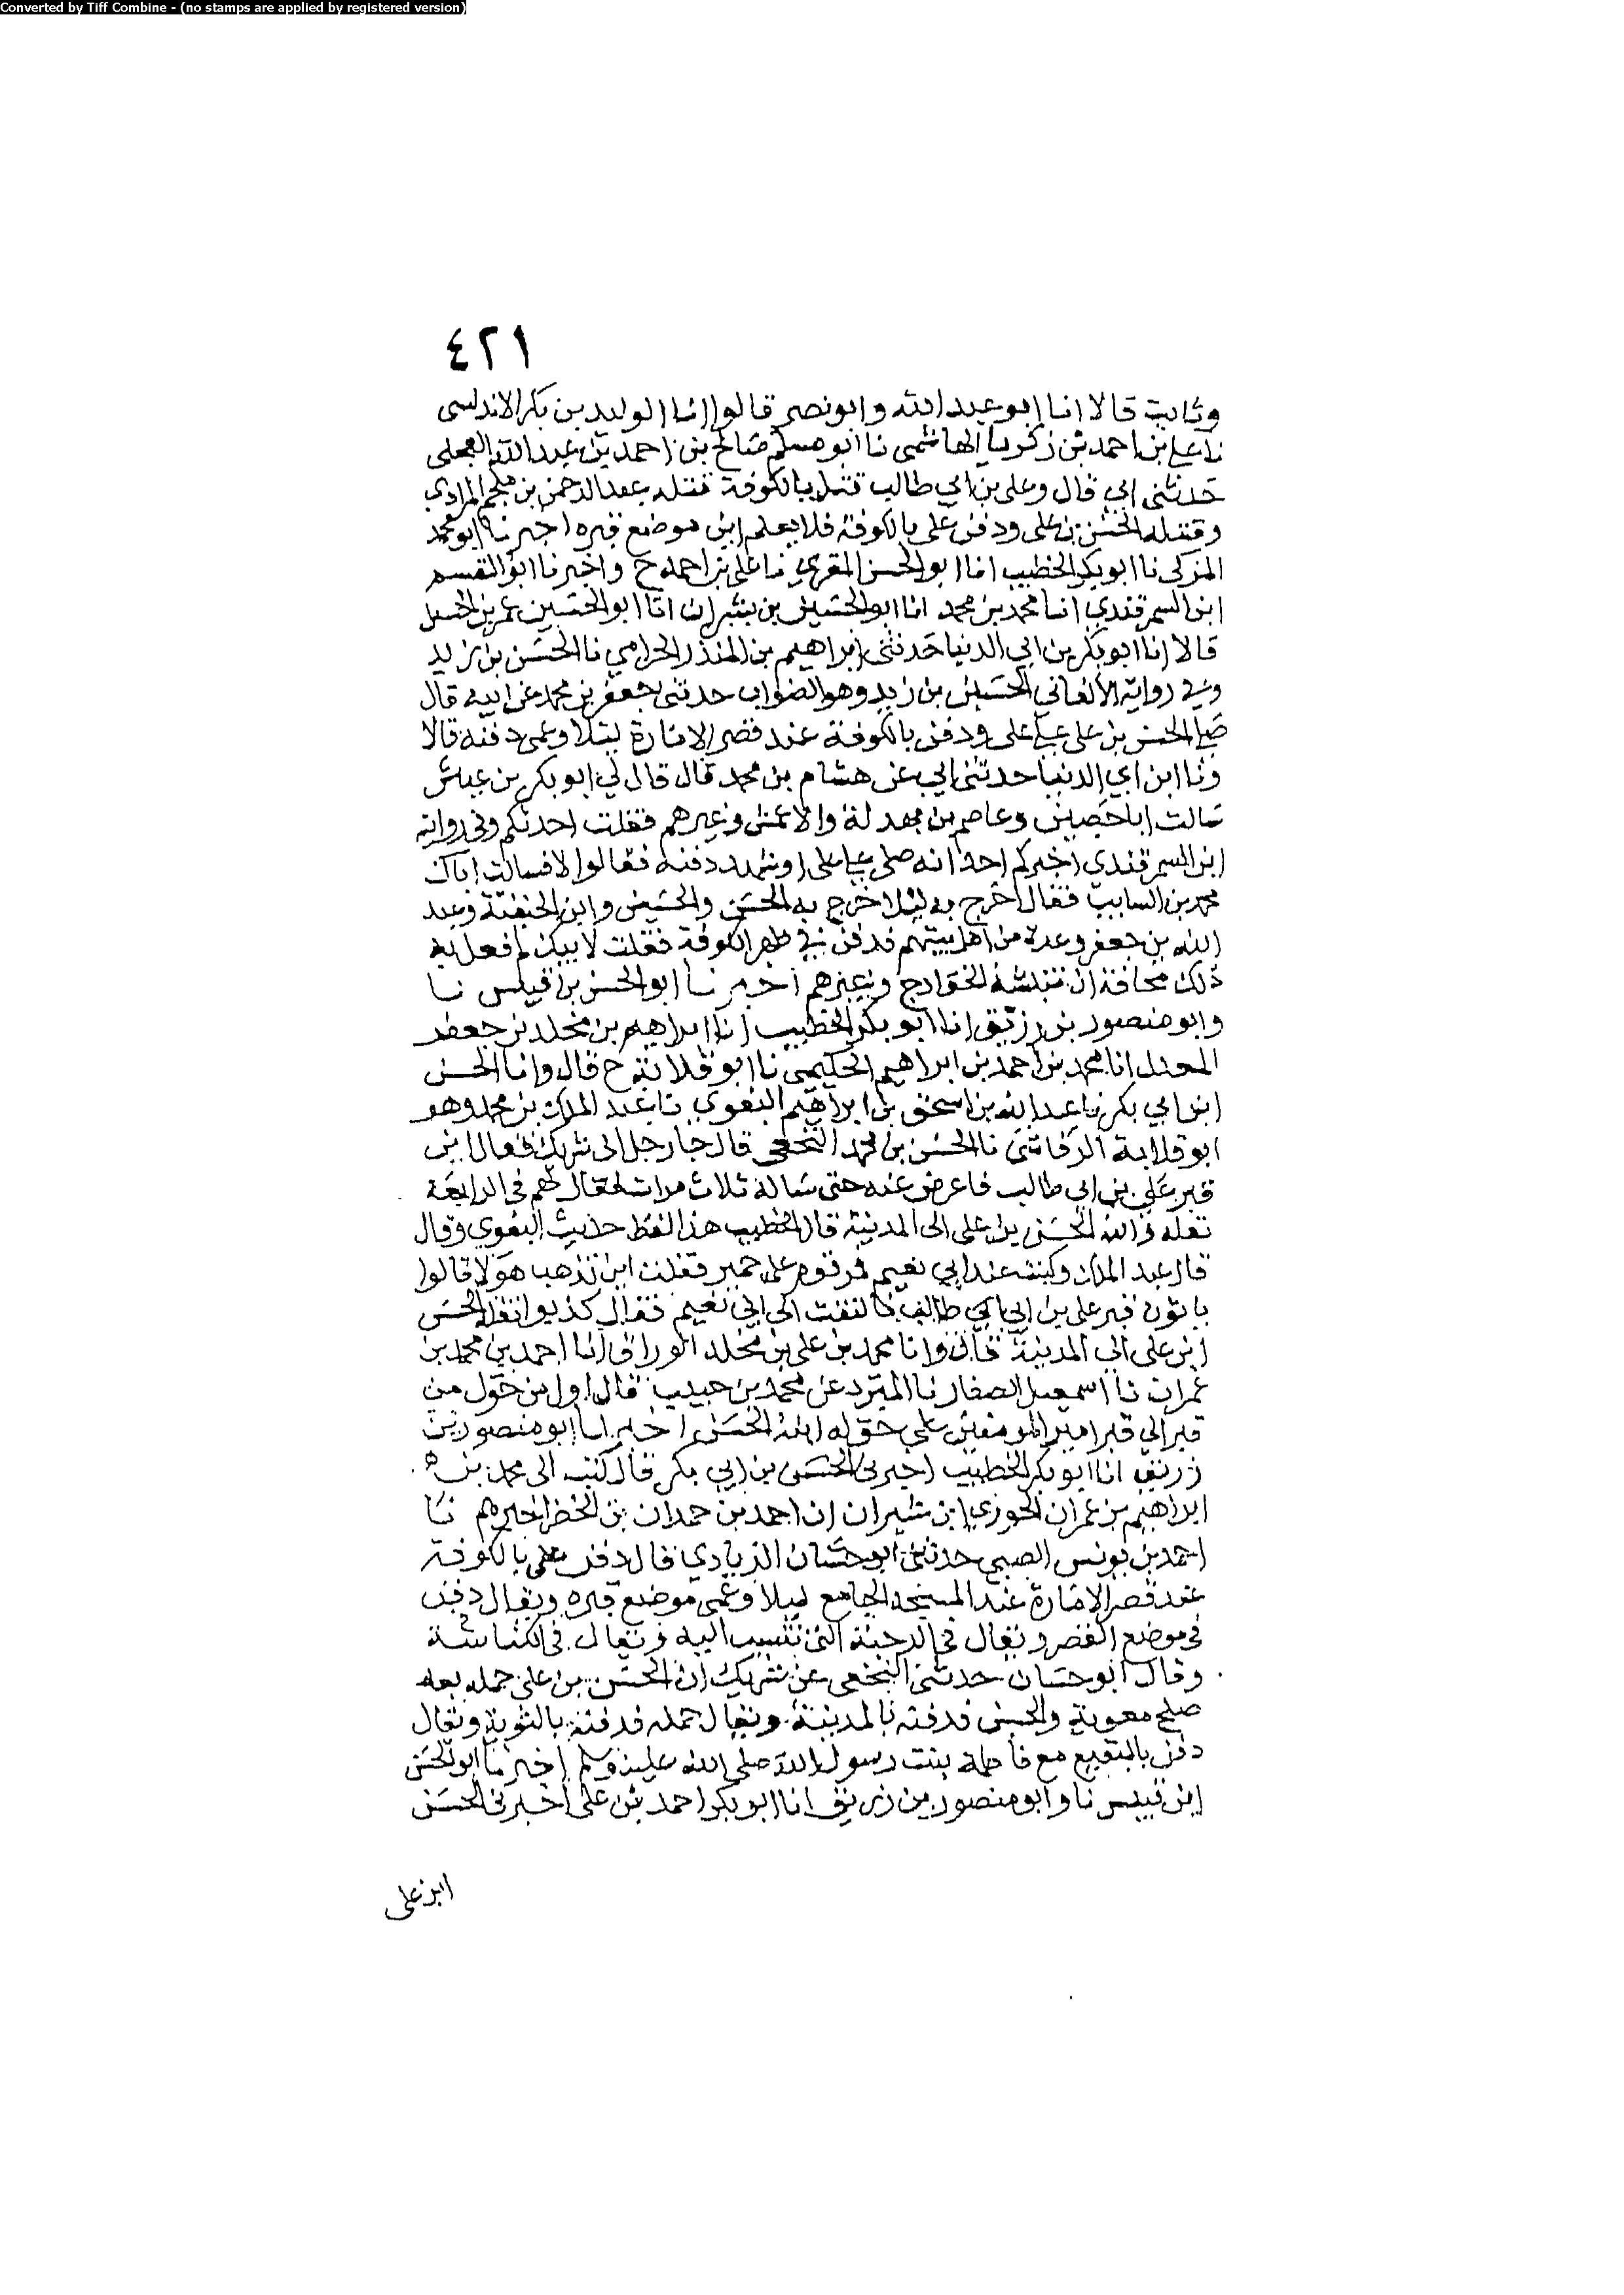 Converted by Tiff Combine - (no stamps are applied by registered version)
٤٢١
وثابت قالا انا ابو عبد الله وابو نصر قالوا انا الوليد بن بكر الاندلسى
نا على بن احمد بن زكريا الهاشمى نا ابو مسلم صالح بن احمد بن عبد الله العجلى
حدثنى ابي قال وعلى بن ابي طالب قتل بالكوفة قتله عبد الرحمن بن ملجم المرادي
وقتله الحسن بن على ودفن على بالكوفة فلا يعلم اين موضع قبره اخبرنا ابو محمد
المزكى نا ابو بكر الخطيب انا ابو الحسن المقري نا على بن احمد ح واخبرنا ابو القسم
ابن السمرقندي انا محمد بن محمد انا ابو الحسين بن بشران انا ابو الحسين عمر بن الحسن
قالا انا ابو بكر بن ابي الدنيا حدثنى ابراهيم بن المنذر الحزامي نا الحسن بن زيد
وفي رواية الحسين بن زيد وهو الصواب حدثنى جعفر بن محمد عن ابيه قال
صلى الحسن بن على على على ودفن بالكوفة عند قصر الامارة ليلا وعمى دفنه قالا
ونا ابن ابي الدنيا حدثنى ابي عن هشام بن محمد قال قال لي ابو بكر بن عياش
سالت ابا حصين وعاصم بن بهدلة والاعمش وغيرهم فقلت احدثكم وفى رواية
ابن السمرقندي اخبركم احد انه صلى على على او شهد دفنه فقالوا لا فسالت اباك
محمد بن السايب فقال اخرج به ليلا خرج به الحسن والحسين وابن الحنفية وعبد
الله بن جعفر وعدة من اهل بيتهم فدفن في ظهر الكوفة فقلت لابيك لم فعل به
ذلك مخافة ان تنبشه الخوارج وغيرهم اخبرنا ابو الحسن بن قبيس نا
وابو منصور بن زريق انا ابو بكر الخطيب انا ابراهيم بن مخلد بن جعفر
المعدل انا محمد بن احمد بن ابراهيم الحكيمى نا ابو قلابة ح قال وانا الحسن
ابن ابي بكر نا عبد الله بن اسحق بن ابراهيم البغوي نا عبد الملك بن محمد وهو
ابو قلابة الرقاشى نا الحسن بن محمد النخعى قال جا رجل الى شريك فقال اين
قبر على بن ابي طالب فاعرض عنه حتى ساله ثلاث مرات فقال لهم فى الرابعة
نقله والله الحسن بن على الى المدينة قال الخطيب هذا لفظ حديث البغوي وقال
قال عبد الملك وكنت عند ابي نعيم فمر قوم على حمير فقلت اين تذهب هولا قالوا
ياتون قبر على بن ابي ابي طالب فالتفت الى ابي نعيم فقال كذبوا نقله الحسن
ابن على الى المدينة قال وانا محمد بن على بن مخلد الوراق انا احمد بن محمد بن
عمران نا اسمعيل الصفار نا المبرد عن محمد بن حبيب قال اول من حول من
قبر الي قبر امير المومنين على حوله ابنه الحسن اخبرنا ابو منصور بن
زريق انا ابو بكر الخطيب اخبرنى الحسن بن ابي بكر قال كتب الى محمد بن
ابراهيم بن عمران الجوري ابن شيران ان احمد بن حمدان بن الخضر اخبرهم نا
احمد بن يونس الضبى حدثنى ابو حسان الزيادي قال دفن على بالكوفة
عند قصر الامارة عند المسجد الجامع ليلا وعمى موضع قبره ويقال دفن
فى موضع القصر ويقال فى الرحبة التى تنسب اليه ويقال فى الكناسة
وقال ابو حسان حدثنى النخعى عن شريك ان الحسن بن على حمله بعد
صلح معوية والحسن فدفنه بالمدينة ويقال حمله فدفنه بالثوية ويقال
دفن بالبقيع مع فاطمة بنت رسول الله صلى الله عليه وسلم اخبرنا ابو الحسن
ابن قبيس نا وابو منصور بن زريق انا ابو بكر احمد بن على اخبرنى الحسن
ابن على